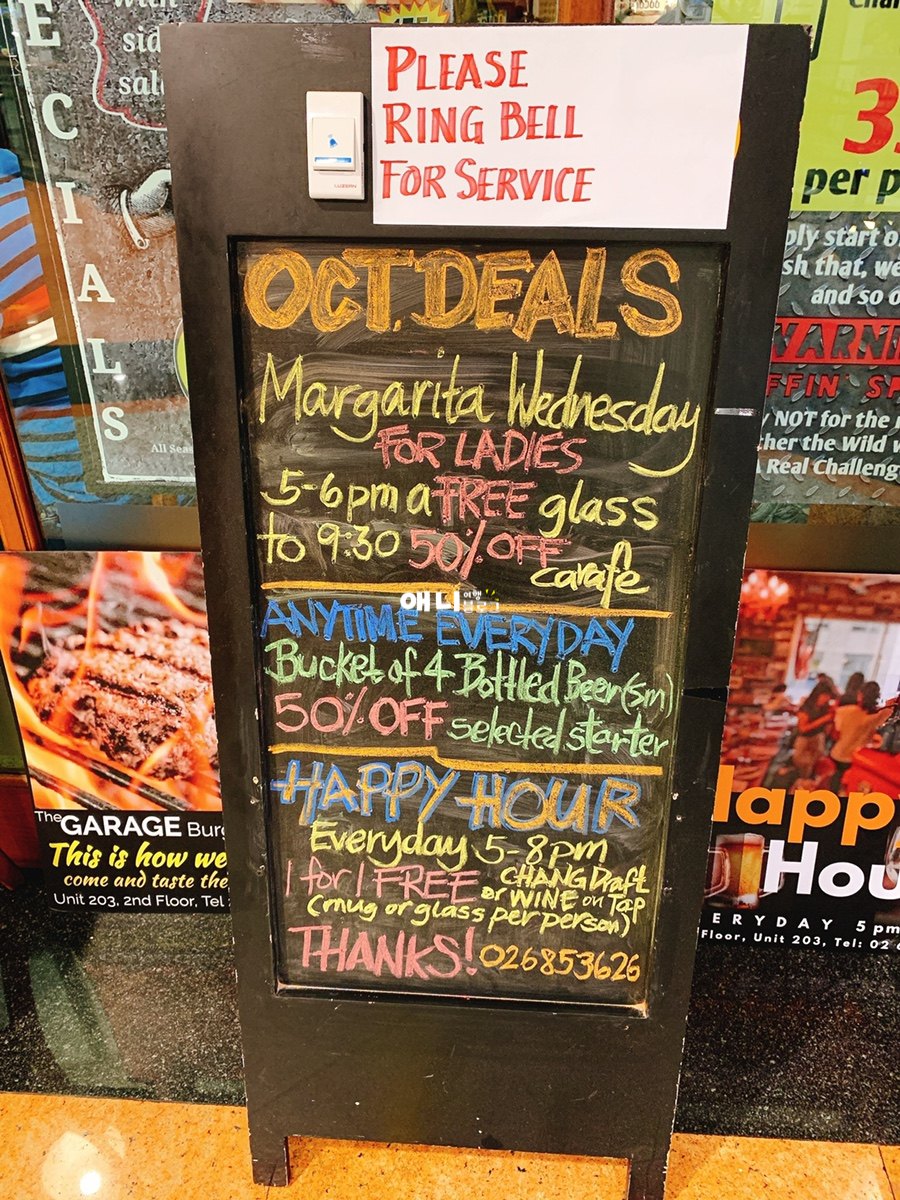 PLEASE
RING BELL
FOR SERVICE
LUZSHN
OCT. DEALS
Margarita Wednesday
FOR LADIES
5-6pm a FREE glass
to 9:30 50% OFF
carafe
애니 여행
ANYTIME EVERYDAY
Bucket of 4 Bottled Beer(sm)
50% OFF selected starter
HAPPY HOUR
Everyday 5-8pm
1 for 1 FREE CHANG Draft
or WINE on Tap
(mug or glass per person)
THANKS! 026853626
E
C
I
A
L
S
with
sid
sala
All Seas
The GARAGE Burg
This is how we
come and taste the
Unit 203, 2nd Floor, Tel
3
per p
ply start o
sh that, we
and so o
WARNI
FFIN' SP
NOT for the
ther the Wild w
A Real Challeng
Happ
Hou
ERYDAY 5pm
Floor, Unit 203, Tel: 02